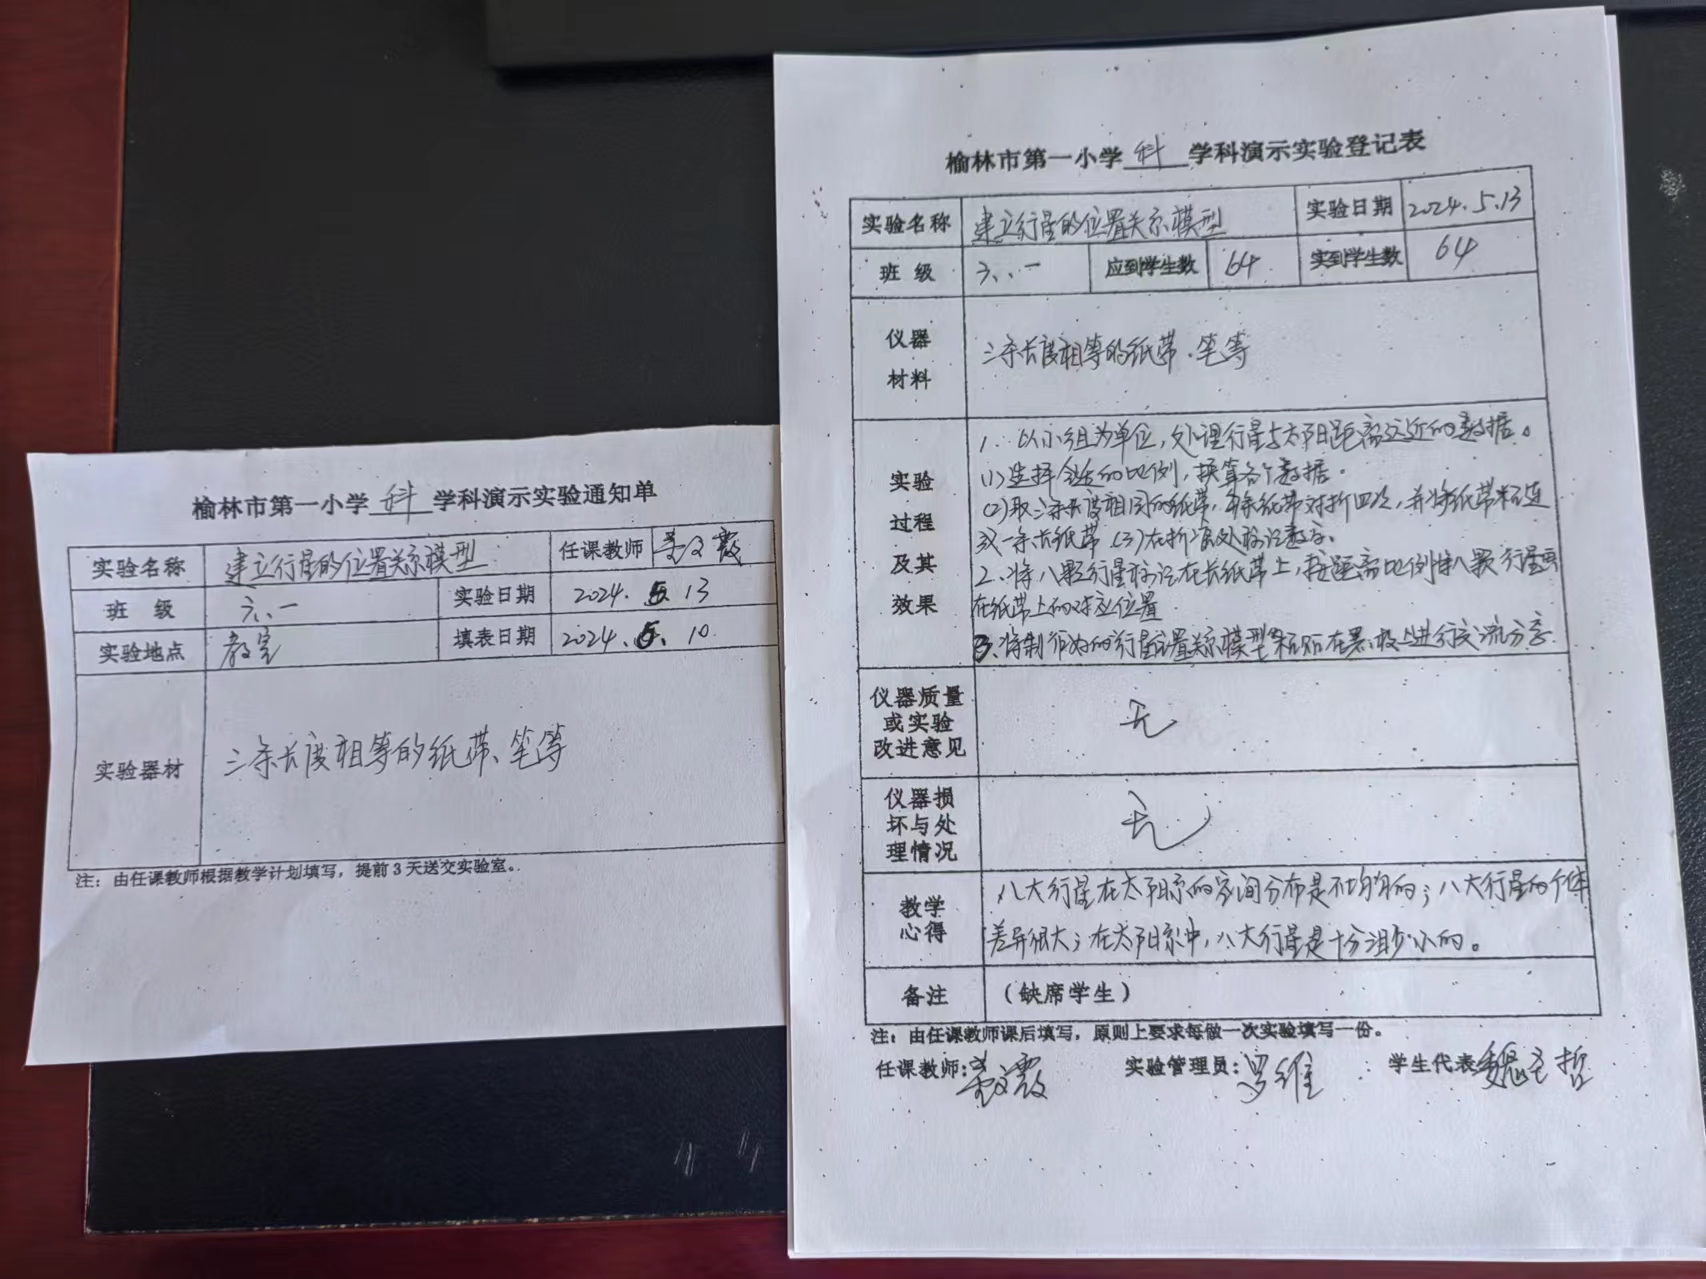 榆林市第一小学 科 学科演示实验通知单
实验名称 建立行星的位置关系模型 任课教师 霞
班 级 六、一 实验日期 2024.5.13
实验地点 教室 填表日期 2024.5.10.
实验器材 三条长度相等的纸带、笔等
注：由任课教师根据教学计划填写，提前3天送交实验室。
榆林市第一小学 科 学科演示实验登记表
实验名称 建立行星的位置关系模型 实验日期 2024.5.13
班 级 六、一 应到学生数 64 实到学生数 64
仪器
材料
三条长度相等的纸带、笔等
实验
过程
及其
效果
1. 以小组为单位，处理行星与太阳距离远近的数据。
(1)选择合适的比例，换算各个数据。
(2)取三条长度相同的纸带，每条纸带对折四次，并将纸带粘连
成一条长纸带 (3)在折痕处标记数字。
2、将八颗行星标记在长纸带上，按距离比例将八颗行星画
在纸带上的对应位置
3、将制作好的行星位置关系模型粘贴在黑板上进行交流分享
仪器质量
或实验
改进意见
无
仪器损
坏与处
理情况
无
教学
心得
八大行星在太阳系的空间分布是不均匀的；八大行星的个体
差异很大；在太阳系中，八大行星是十分渺小的。
备注 （缺席学生）
注：由任课教师课后填写，原则上要求每做一次实验填写一份。
任课教师： 霞 实验管理员：罗维 学生代表 魏 哲